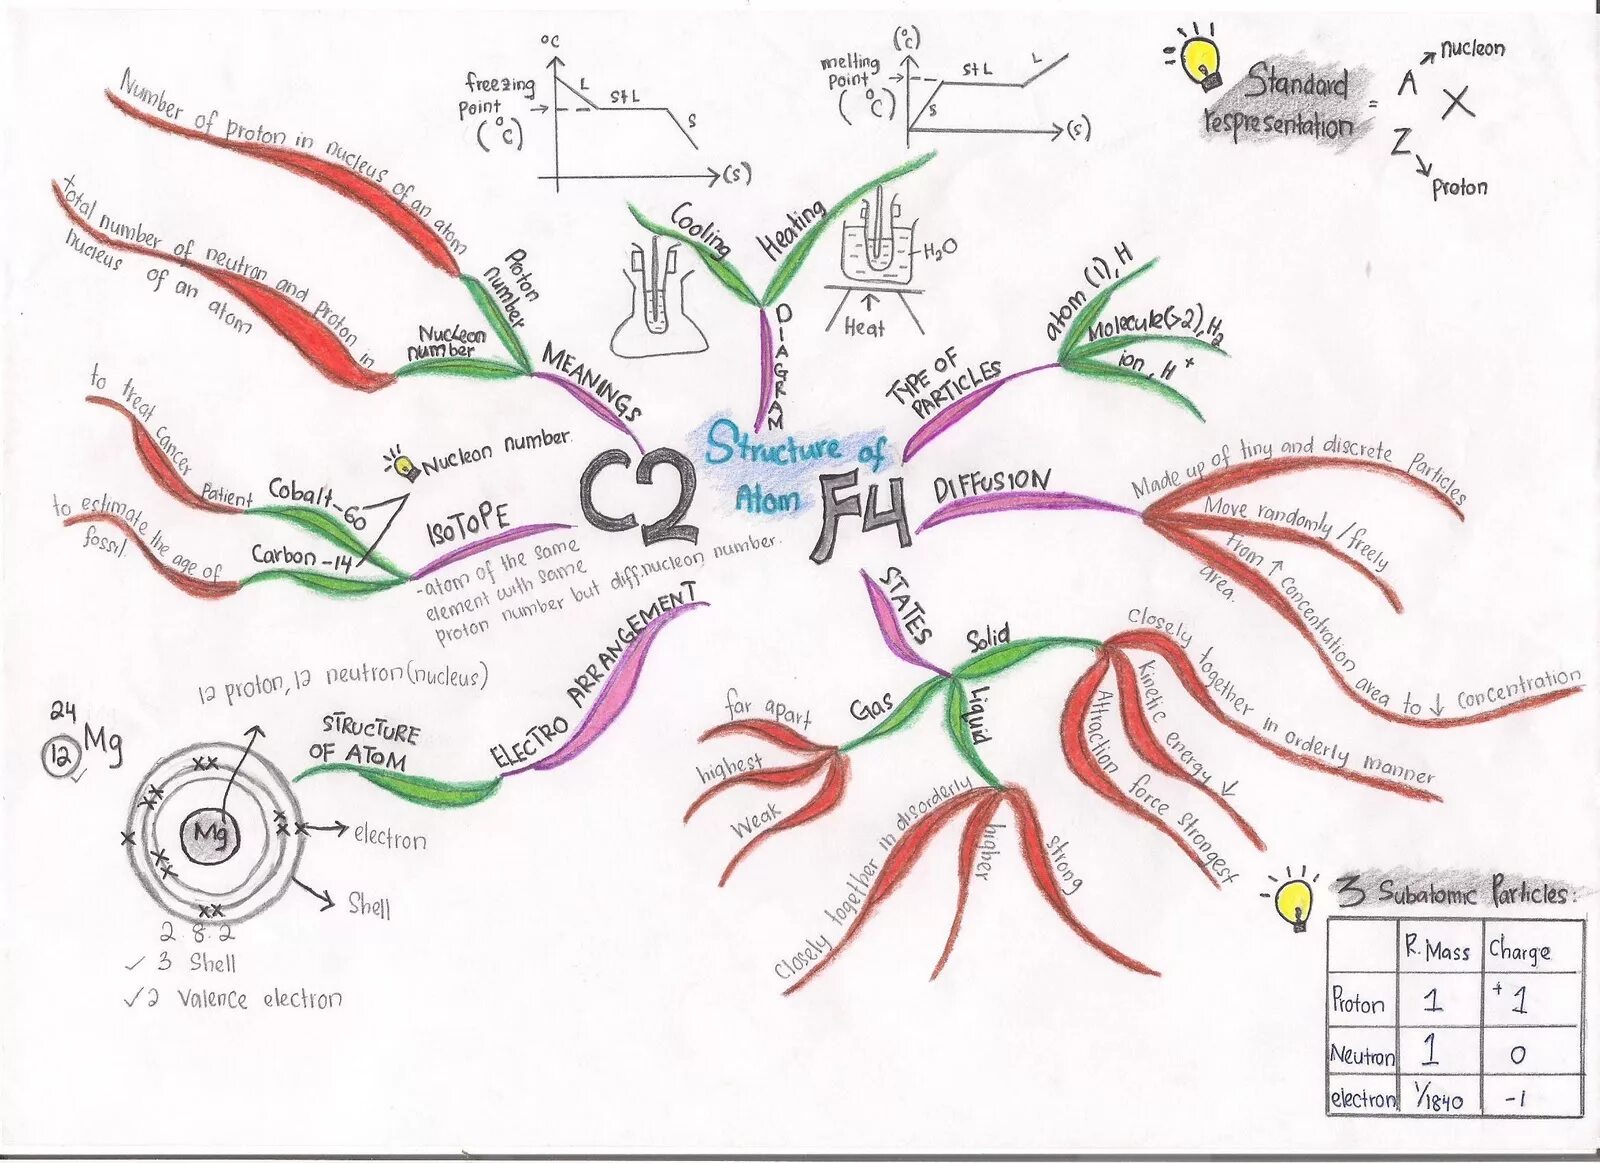 Structure of
Atom
C2
F4
DIAGRAM
Cooling
Heating
°C
freezing
point
(°C)
L
S+L
S
(s)
(°C)
melting
point
(°C)
S
S+L
L
(s)
H₂O
Heat
Standard
respresentation
=
A
nucleon
X
Z
proton
TYPE OF
PARTICLES
atom (1), H
Molecule(>2), H₂
ion, H⁺
DIFFUSION
Made up of tiny and discrete particles
Move randomly/freely
From ↑ concentration area to ↓ concentration
area.
STATES
Solid
Closely together in orderly manner
Kinetic energy ↓
Attraction force strongest
Liquid
Closely together in disorderly
higher
strong
Gas
far apart
highest
Weak
3 Subatomic Particles:
R. Mass Charge
Proton 1 +1
Neutron 1 0
electron 1/1840 -1
MEANINGS
Proton
number
Number of proton in nucleus of an atom
Nucleon
number
total number of neutron and proton in
nucleus of an atom
ISOTOPE
-atom of the same
element with same
proton number but diff. nucleon number.
Nucleon number.
Cobalt-60
to treat cancer
patient
Carbon-14
to estimate the age of
fossil.
ELECTRO ARRANGEMENT
STRUCTURE
OF ATOM
12 proton, 12 neutron (nucleus)
24
12
Mg
Mg
electron
Shell
2.8.2
✓ 3 Shell
✓ 2 Valence electron